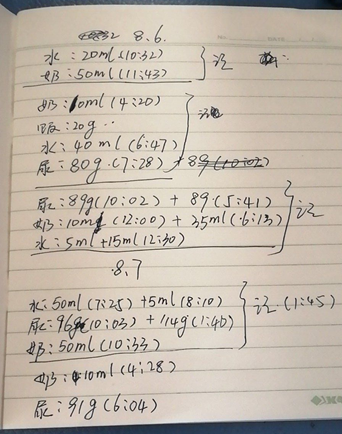 8.6.
水：20ml(10:32)
奶：50ml(11:43) 记
奶：10ml(4:20)
：20g
水：40ml(6:47) 记
尿：80g(7:28) +89(10:02)
尿：89g(10:02) + 89(5:41)
奶：10ml(12:00) + 35ml(6:13) 记
水：5ml+15ml(2:30)
8.7
水：50ml(7:25) +5ml(8:10)
尿：96g(10:03) + 114g(1:40) 记(1:45)
奶：50ml(10:33)
奶：10ml(4:28)
尿：91g(6:04)